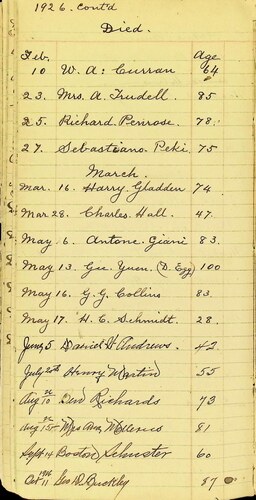 1926. Cont'd
Died.
Feb. Age
10 W. A. Curran 64
23. Mrs. A. Trudell. 85
25. Richard Penrose. 78.
27. Sebastiano Peki. 75
March.
Mar. 16. Harry. Gladden 74.
Mar 28. Charles. Hall. 47.
May 6. Antone. Giani 83.
May 13. Gee Yuen. (D. Egg) 100
May 16. G. G. Collins 83.
May 17. H. C. Schmidt. 28.
June 5 Daniel H Andrews. 42
July 20th Henry Martin 55
Aug 10 Richards 73
Aug Mrs 81
Sept 14 Boston Schuster 60
Oct 11 1926 Geo D. Buckley 87